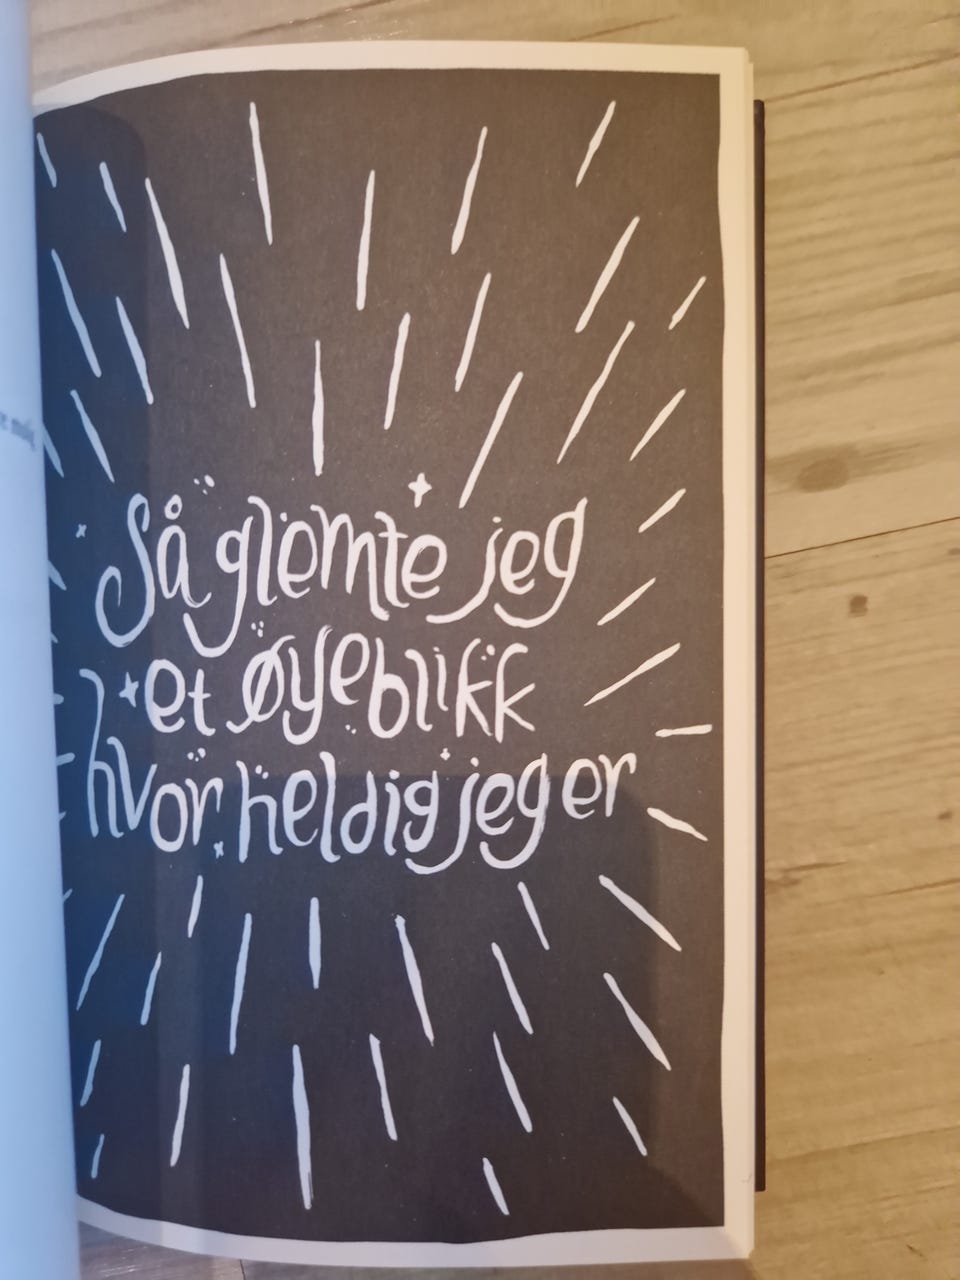 Så glemte jeg
et øyeblikk
hvor heldig jeg er